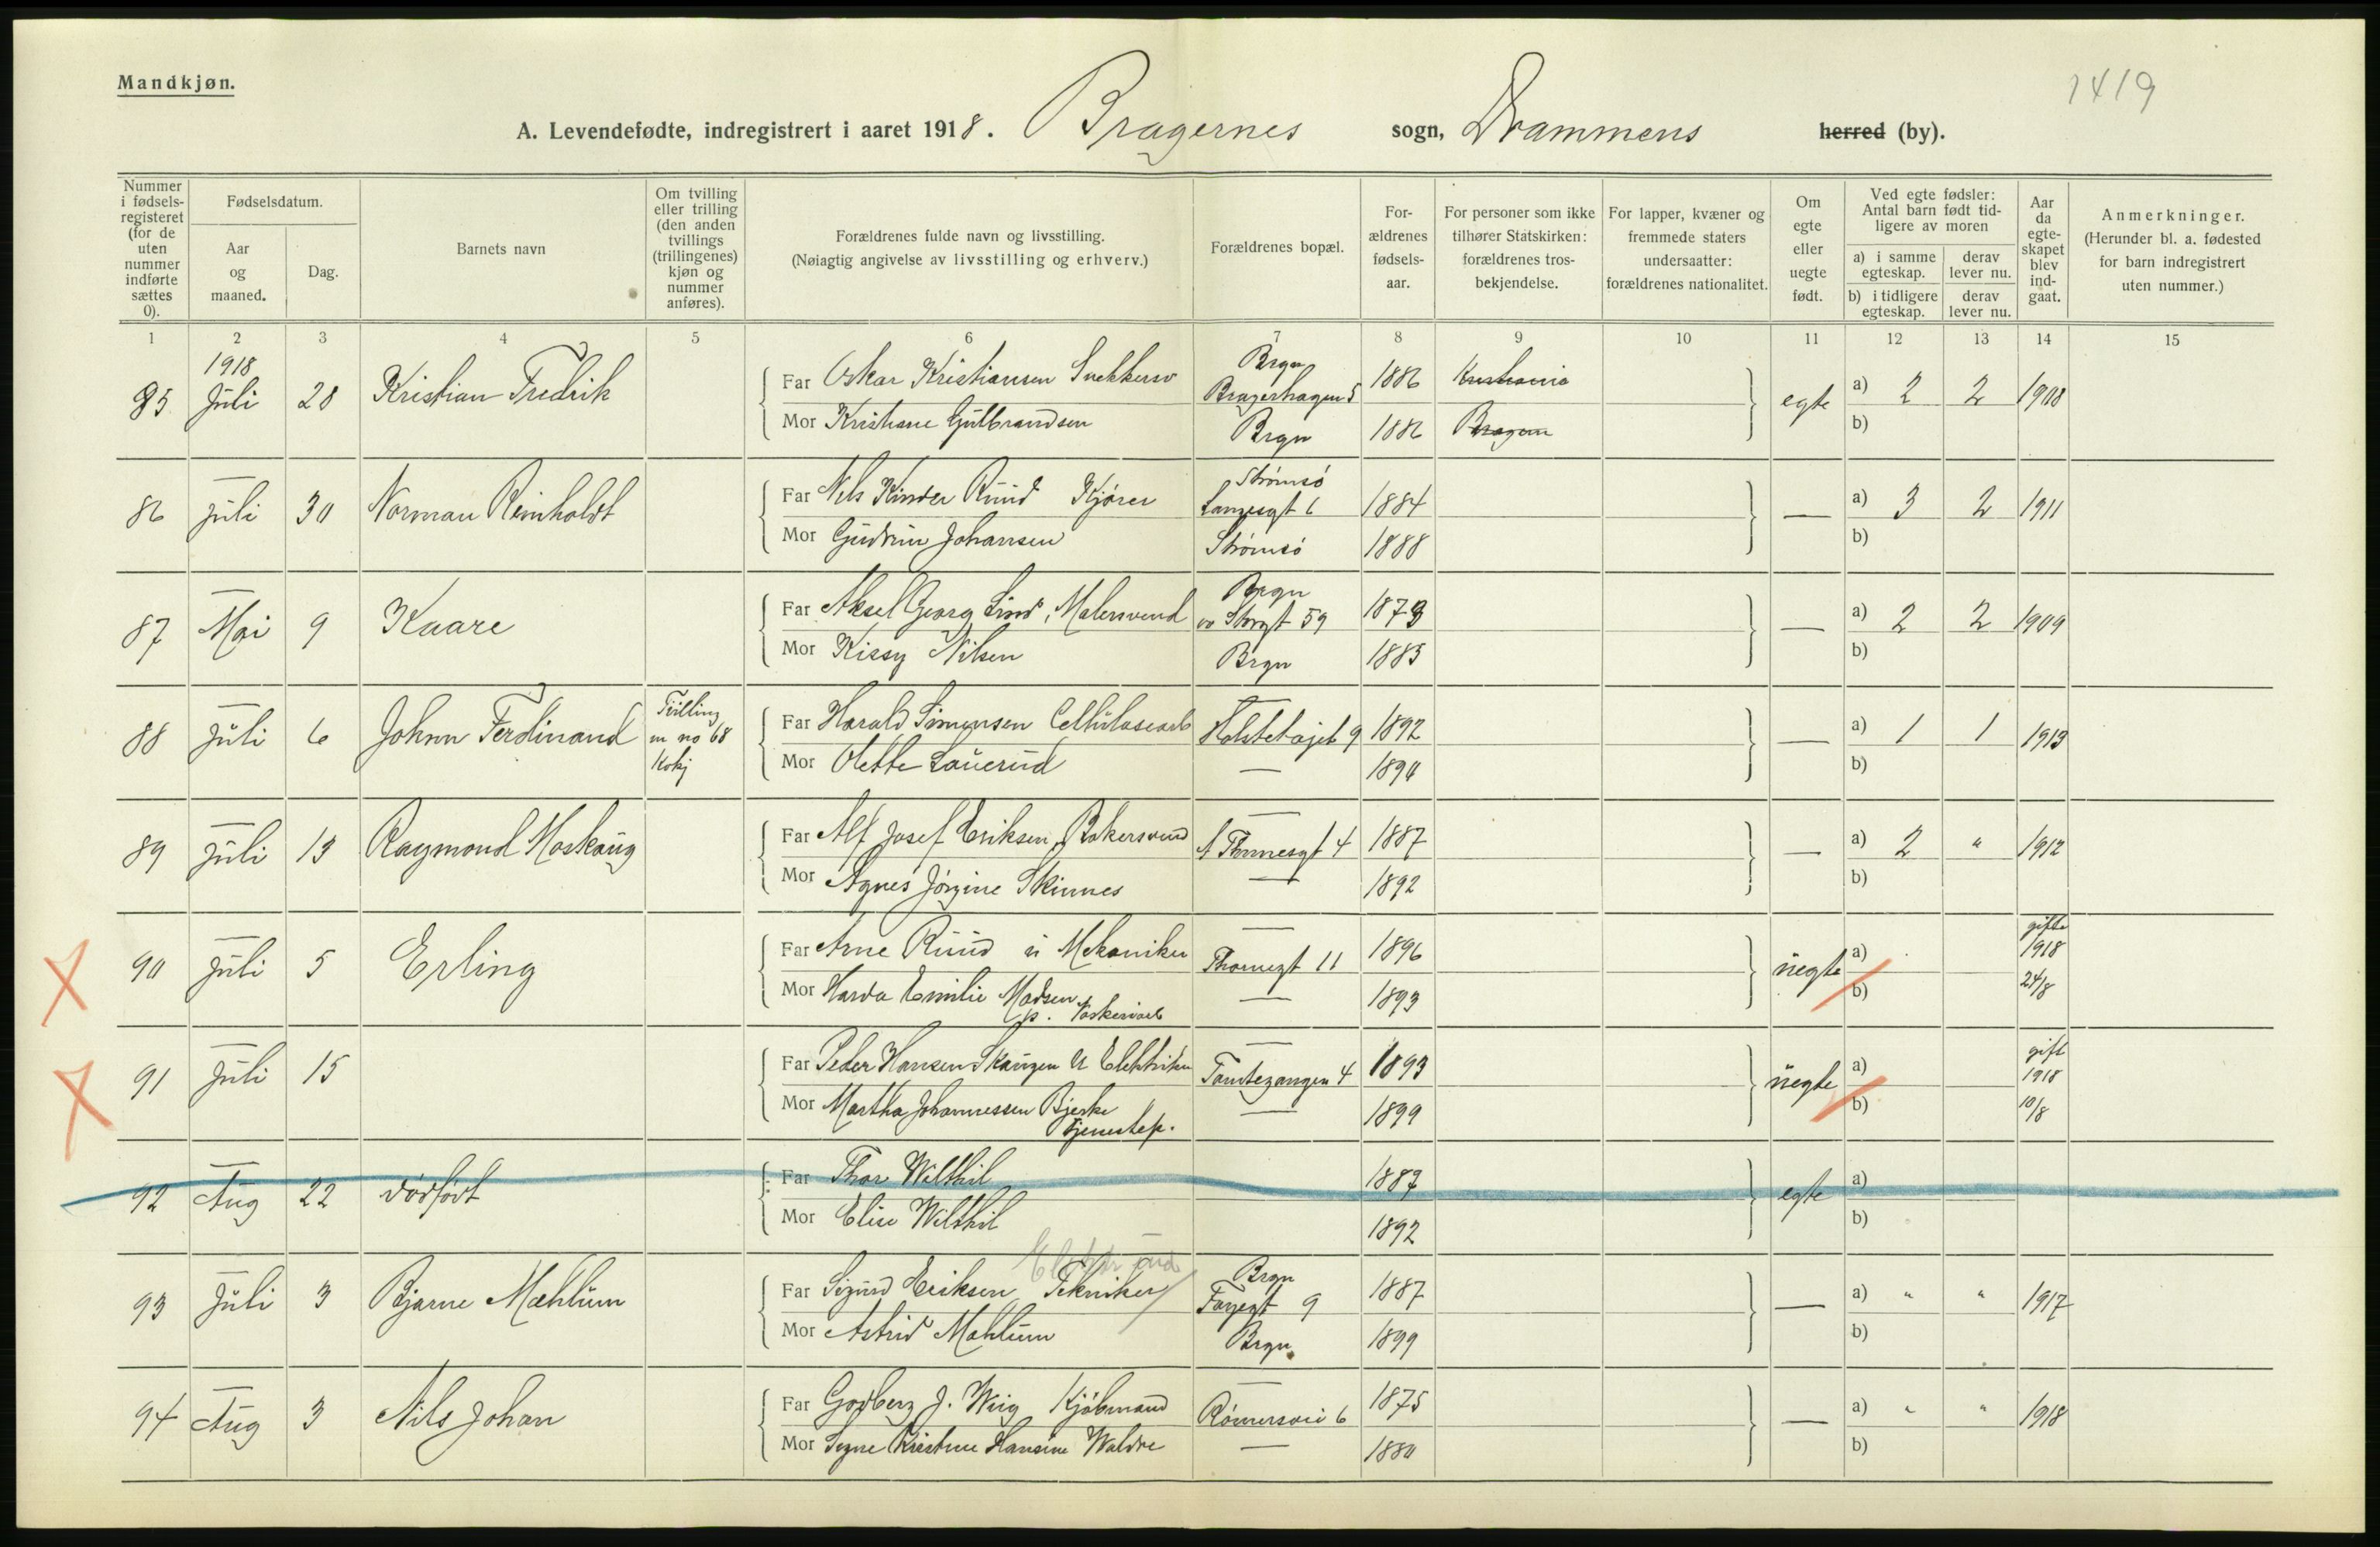 Mandkjøn.
1419
A. Levendefødte, indregistrert i aaret 1918. Bragernes sogn, Drammens herred (by).
Nummer i fødsels-registeret (for de uten nummer indførte sættes 0).
Fødselsdatum.
Aar og maaned.
Dag.
Barnets navn
Om tvilling eller trilling (den anden tvillings (trillingenes) kjøn og nummer anføres).
Forældrenes fulde navn og livsstilling.
(Nøiagtig angivelse av livsstilling og erhverv.)
Forældrenes bopæl.
For-ældrenes fødsels-aar.
For personer som ikke tilhører Statskirken: forældrenes tros-bekjendelse.
For lapper, kvæner og fremmede staters undersaatter: forældrenes nationalitet.
Om egte eller uegte født.
Ved egte fødsler: Antal barn født tid-ligere av moren
a) i samme egteskap. derav lever nu.
b) i tidligere egteskap. derav lever nu.
Aar da egte-skapet blev ind-gaat.
Anmerkninger.
(Herunder bl. a. fødested for barn indregistrert uten nummer.)
1 2 3 4 5 6 7 8 9 10 11 12 13 14 15
1918
85 Juli 28 Kristian Fredrik Far Oskar Kristiansen Snekkersv Brgn Bragerhagen 5 1886 Kristiania egte a) 2 2 1908
Mor Kristiane Gulbrandsen Brgn 1886 Bragern b)
86 Juli 30 Norman Reinholdt Far Nils Kinder Ruud Kjører Strømsø Langesgt 6 1884 — a) 3 2 1911
Mor Gudrun Johansen Strømsø 1888 b)
87 Mai 9 Kaare Far Aksel Georg Lind, Malersvend Brgn ov Storgt 59 1873 — a) 2 2 1909
Mor Kissy Nilsen Brgn 1883 b)
88 Juli 6 Johan Ferdinand Tvilling m no 68 Kvkj Far Harald Simensen Cellulosearb 9 1892 — a) 1 1 1913
Mor Olette Lauerud — 1890 b)
89 Juli 13 Raymond Haskaug Far Alf Josef Eriksen, Bakersvend 4 1887 — a) 2 " 1912
Mor Agnes Jørgine Skinnes — 1892 b)
90 Juli 5 Erling Far Arne Ruud u Mekaniker Thornegt 11 1896 uegte a) gifte 1918
Mor Harda Emilie Madsen p. Væskeriarb — 1893 b) 24/8
91 Juli 15 Far Peder Hansen Skaugen U Elektriker Tomtegangen 4 1893 uegte a) gift 1918
Mor Martha Johannessen Bjerke Tjenestep. — 1899 b) 10/8
92 Aug 22 dødfødt Far Thor Wilthil 1887 egte a)
Mor Elise Wilthil 1892 b)
93 Juli 3 Bjarne Mæhlum Far Sigurd Eriksen Tekniker Brgn 9 1887 — a) " " 1917
Mor Astrid Mæhlum Brgn 1899 b)
94 Aug 3 Nils Johan Far Godberg J. Wiig Kjøbmand Rømersvei 6 1875 — a) " " 1918
Mor Signe Kristine Hansine Waldre — 1880 b)